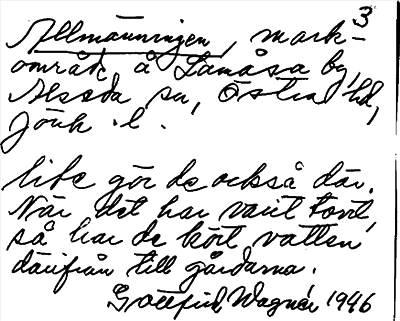 3
Allmänningen, mark-
område å Lanåsa by,
Alseda sn, Östra hd,
Jönk. l.
life gör de också där.
När det har varit torrt,
så har de kört vatten
därifrån till gårdarna.
Gottfrid Wagner 1946